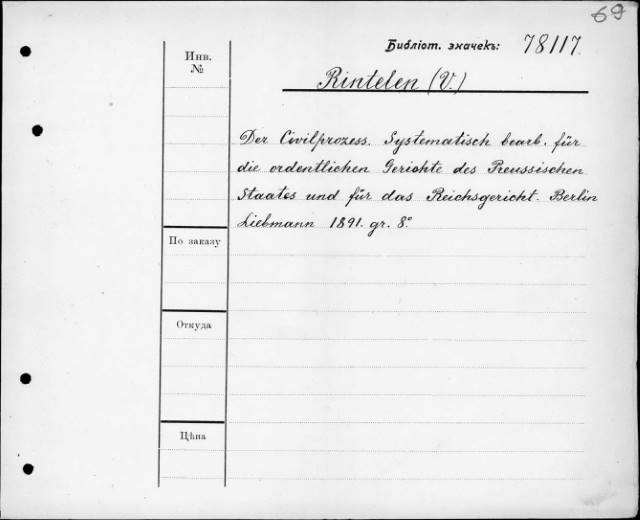 69
Библіот. значекъ: 78117.
Инв.
№
Rintelen (V.)
Der Civilprozess. Systematisch bearb. für
die ordentlichen Gerichte des Preussischen
Staates und für das Reichsgericht. Berlin
Liebmann 1891. gr. 8°
По заказу
Откуда
Цѣна